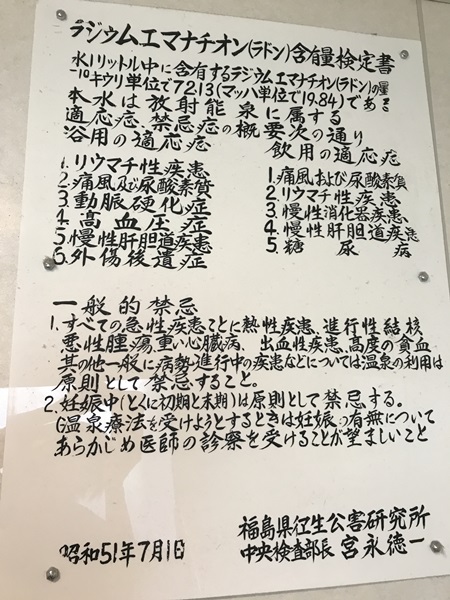 ラジウムエマナチオン(ラドン)含有量検定書
水1リットル中に含有するラジウムエマナチオン(ラドン)の量は
-10キウリ単位で72.13(マッハ単位で19.84)である
本水は放射能泉に属する
適応症、禁忌症の概要次の通り
浴用の適応症
1. リウマチ性疾患
2. 痛風及び尿酸素質
3. 動脈硬化症
4. 高血圧症
5. 慢性肝胆道疾患
6. 外傷後遺症
飲用の適応症
1. 痛風および尿酸素質
2. リウマチ性疾患
3. 慢性消化器疾患
4. 慢性肝胆道疾患
5. 糖尿病
一般的禁忌
1. すべての急性疾患ことに熱性疾患、進行性結核
悪性腫瘍重い心臓病、出血性疾患、高度の貧血
其の他一般に病勢進行中の疾患などについては温泉の利用は
原則として禁忌すること。
2. 妊娠中(とくに初期と末期)は原則として禁忌する。
G温泉療法を受けようとするときは妊娠の有無について
あらかじめ医師の診察を受けることが望ましいこと
昭和51年7月1日
福島県衛生公害研究所
中央検査部長 宮永徳一